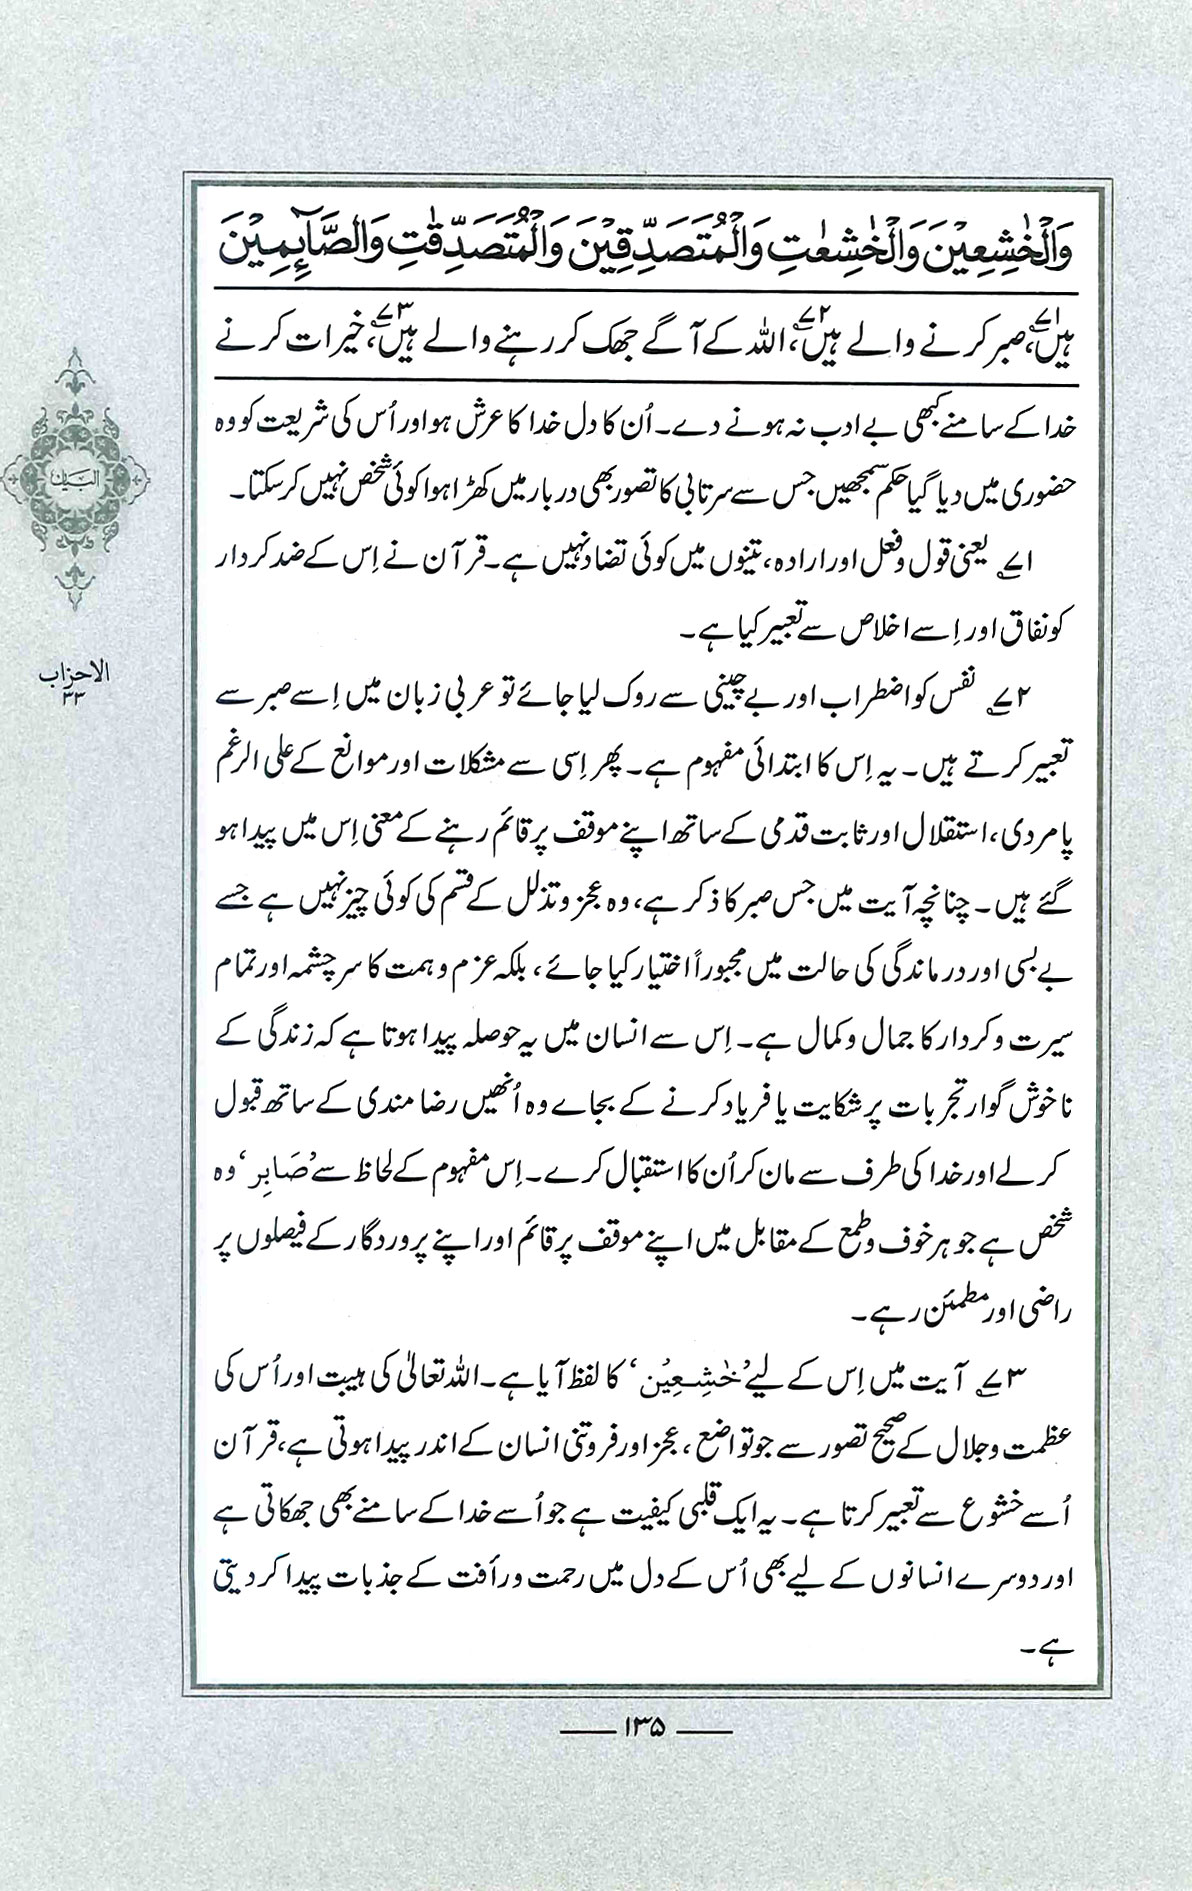 وَالْخٰشِعِيْنَ وَالْخٰشِعٰتِ وَالْمُتَصَدِّقِيْنَ وَالْمُتَصَدِّقٰتِ وَالصَّآئِمِيْنَ
ہیں،۷۱ صبر کرنے والے ہیں،۷۲ اللہ کے آگے جھک کر رہنے والے ہیں،۷۳ خیرات کرنے
خدا کے سامنے کبھی بے ادب نہ ہونے دے۔ اُن کا دل خدا کا عرش ہو اور اُس کی شریعت کو وہ
حضوری میں دیا گیا حکم سمجھیں جس سے سرتابی کا تصور بھی دربار میں کھڑا ہوا کوئی شخص نہیں کر سکتا۔
۷۱؎ یعنی قول و فعل اور ارادہ، تینوں میں کوئی تضاد نہیں ہے۔ قرآن نے اِس کے ضد کردار
کو نفاق اور اِسے اخلاص سے تعبیر کیا ہے۔
۷۲؎ نفس کو اضطراب اور بے چینی سے روک لیا جائے تو عربی زبان میں اِسے صبر سے
تعبیر کرتے ہیں۔ یہ اِس کا ابتدائی مفہوم ہے۔ پھر اِسی سے مشکلات اور موانع کے علی الرغم
پامردی، استقلال اور ثابت قدمی کے ساتھ اپنے موقف پر قائم رہنے کے معنی اِس میں پیدا ہو
گئے ہیں۔ چنانچہ آیت میں جس صبر کا ذکر ہے، وہ عجز و تذلل کے قسم کی کوئی چیز نہیں ہے جسے
بے بسی اور درماندگی کی حالت میں مجبوراً اختیار کیا جائے، بلکہ عزم و ہمت کا سرچشمہ اور تمام
سیرت و کردار کا جمال و کمال ہے۔ اِس سے انسان میں یہ حوصلہ پیدا ہوتا ہے کہ زندگی کے
ناخوش گوار تجربات پر شکایت یا فریاد کرنے کے بجاے وہ اُنھیں رضامندی کے ساتھ قبول
کر لے اور خدا کی طرف سے مان کر اُن کا استقبال کرے۔ اِس مفہوم کے لحاظ سے ’صَابِر‘ وہ
شخص ہے جو ہر خوف و طمع کے مقابل میں اپنے موقف پر قائم اور اپنے پروردگار کے فیصلوں پر
راضی اور مطمئن رہے۔
۷۳؎ آیت میں اِس کے لیے ’خٰشِعِيْن‘ کا لفظ آیا ہے۔ اللہ تعالیٰ کی ہیبت اور اُس کی
عظمت و جلال کے صحیح تصور سے جو تواضع، عجز اور فروتنی انسان کے اندر پیدا ہوتی ہے، قرآن
اُسے خشوع سے تعبیر کرتا ہے۔ یہ ایک قلبی کیفیت ہے جو اُسے خدا کے سامنے بھی جھکاتی ہے
اور دوسرے انسانوں کے لیے بھی اُس کے دل میں رحمت و رأفت کے جذبات پیدا کر دیتی
ہے۔
البیان
الاحزاب
۳۳
۱۳۵